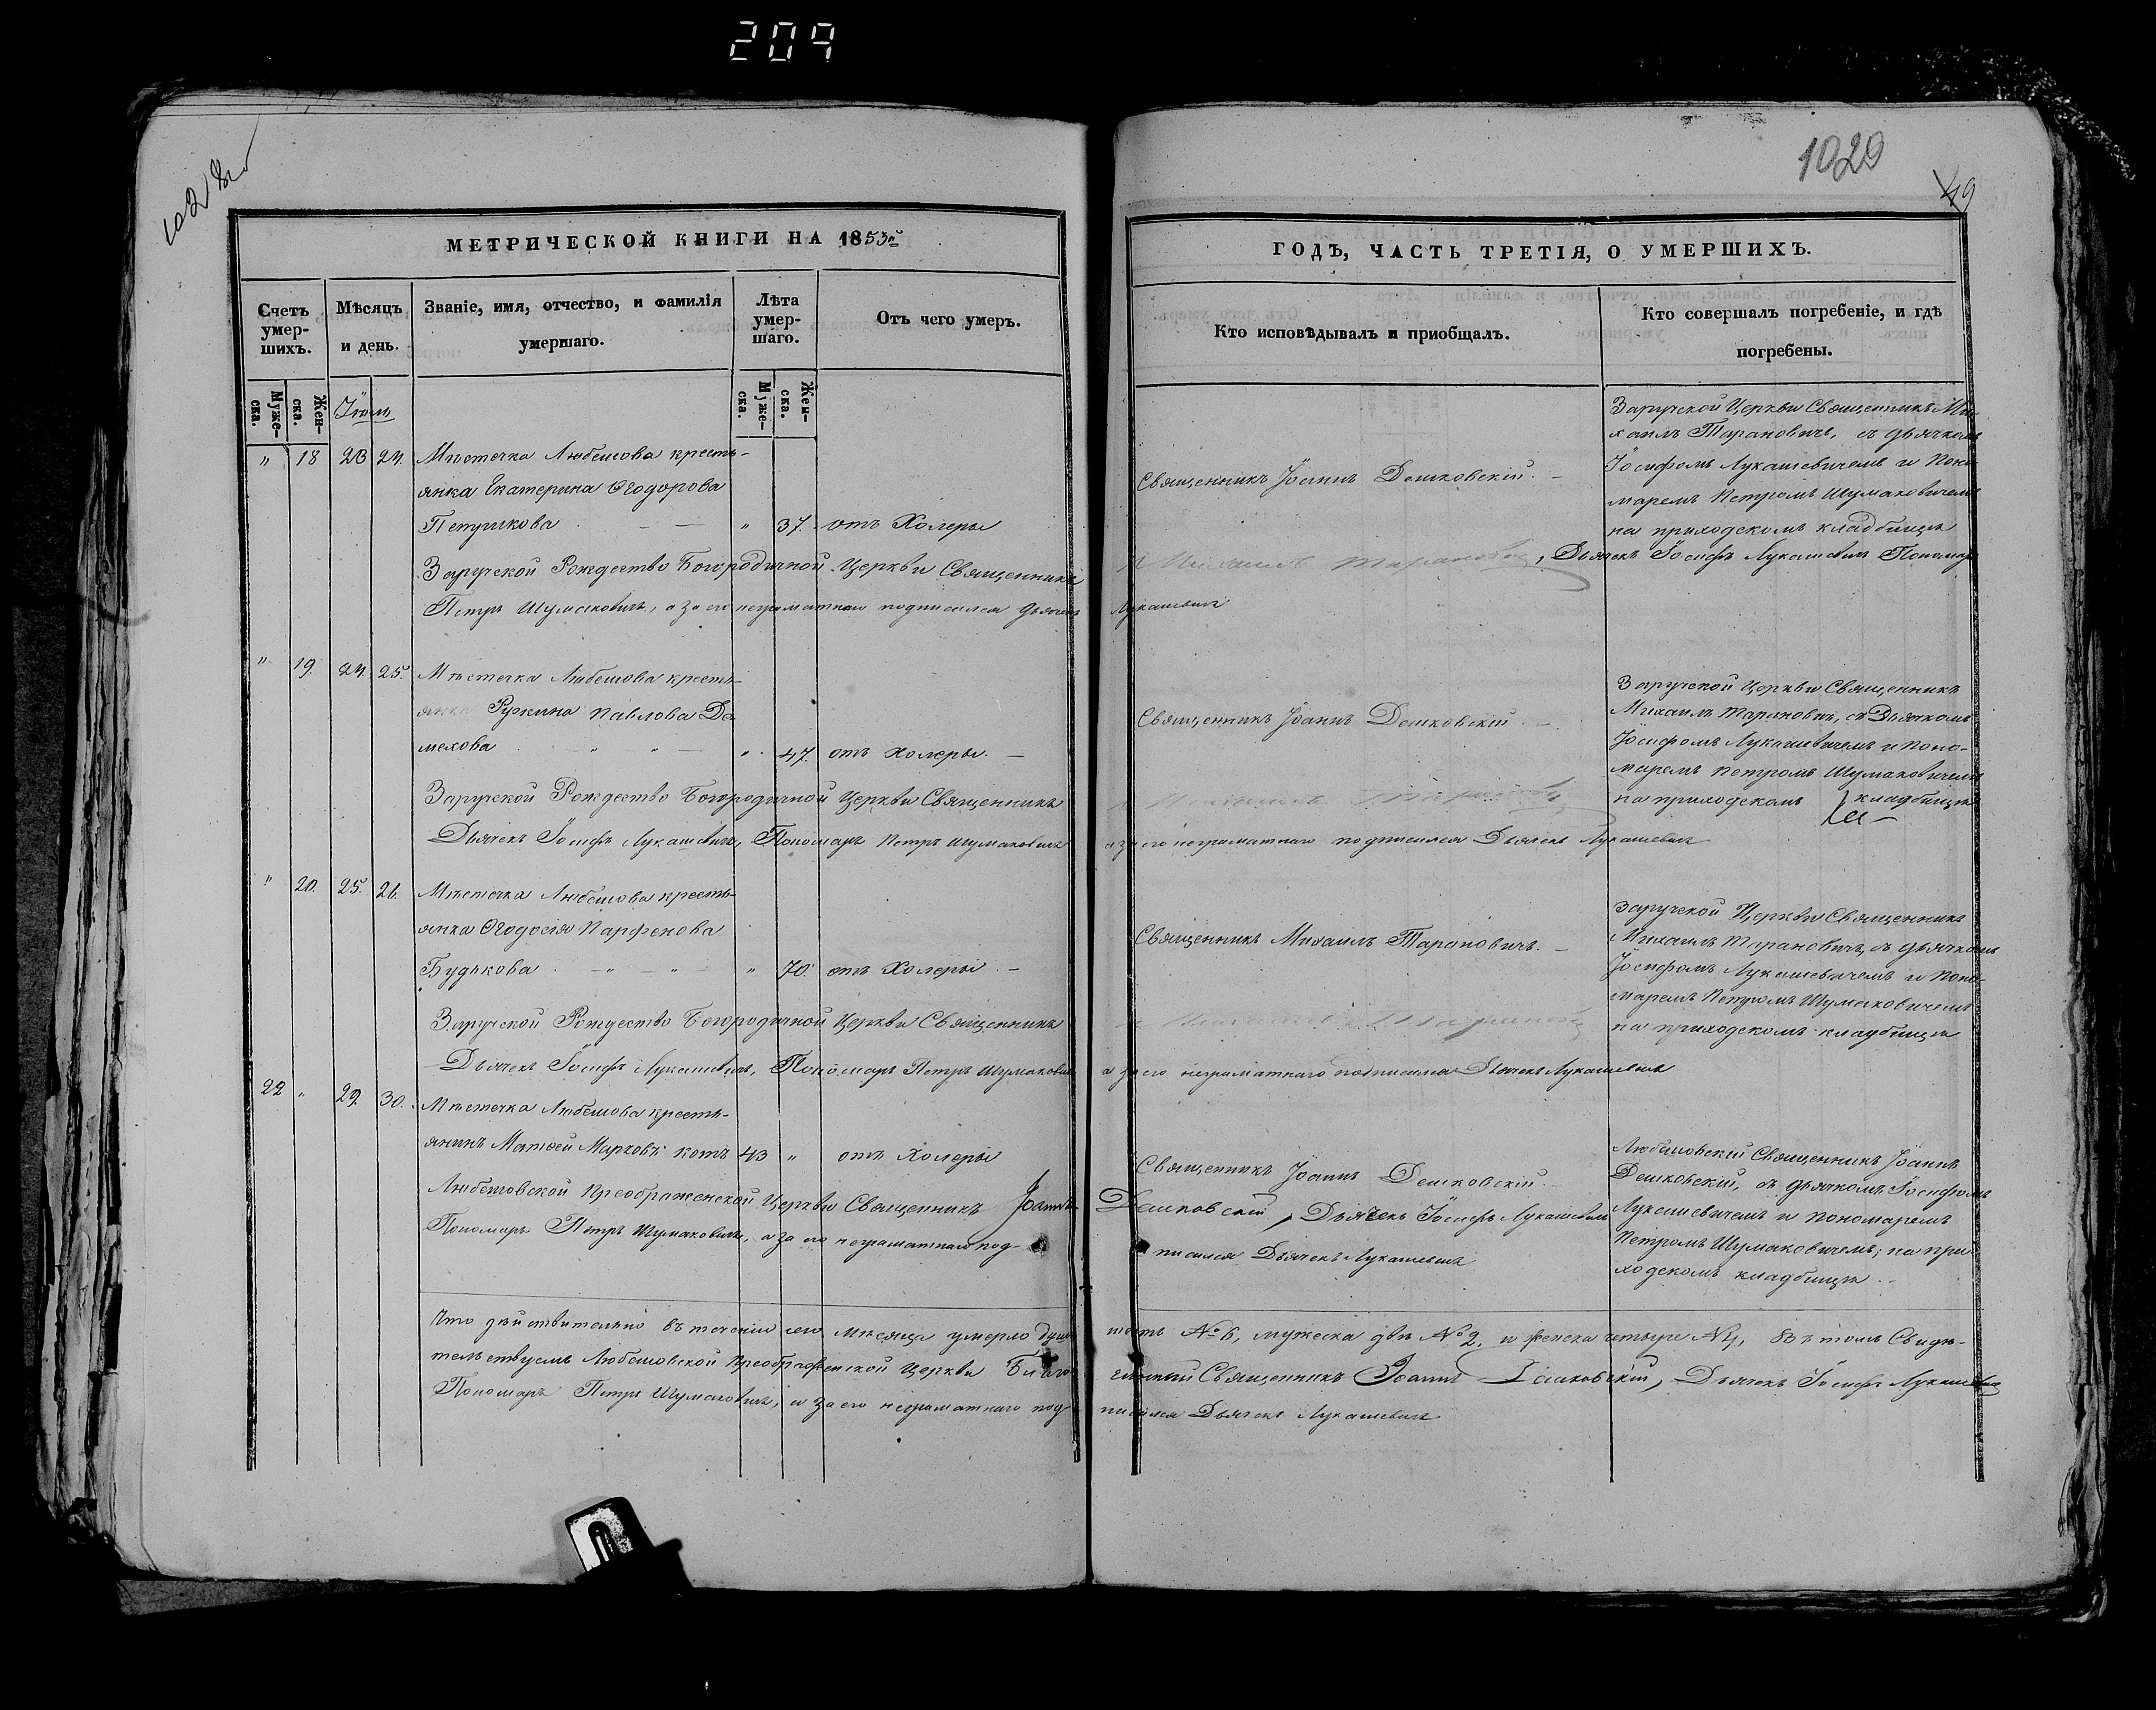 209
1028
1029
49
МЕТРИЧЕСКОЙ КНИГИ НА 1853й
Счетъ умер-
шихъ.
Мѣсяцъ
и день.
Званіе, имя, отчество, и фамилія
умершаго.
Лѣта
умер-
шаго.
Отъ чего умеръ.
Муже-
ска.
Жен-
ска.
Іюль
Муже-
ска.
Жен-
ска.
" 18 23 24. Мѣстечка Любешова кресть-
янка Екатерина Ѳеодорова
Петрикова " 37. отъ Холеры
Заручской Рождество Богородичной Церкви Священникъ
Петръ Шумаковичъ, а за его неграматнаго подписался Дьячекъ
" 19. 24. 25. Мѣстечка Любешова кресть-
янка Павлова
" 47. отъ холеры. —
Заручской Рождество Богородичной Церкви Священникъ
Дьячекъ Іосифъ Лукашевичъ, Пономарь Петръ Шумаковичъ
" 20. 25. 26. Мѣстечка Любешова кресть-
янка Ѳеодосія Парфенова
Будькова " " " 70. отъ Холеры. —
Заручской Рождество Богородичной Церкви Священникъ
Дьячекъ Іосифъ Лукашевичъ, Пономарь Петръ Шумаковичъ
22 " 29. 30. Мѣстечка Любешова кресть-
янинъ Матѳей Марковъ Котъ 43 " отъ Холеры
Любешовской Преображенской Церкви Священникъ Іоаннъ
Пономарь Петръ Шумаковичъ, а за его неграматнаго под-
Что дѣйствительно въ теченіи сего мѣсяца умерло душъ
тельствуемъ Любешовской Преображенской Церкви Благо-
Пономарь Петръ Шумаковичъ, а за его неграматнаго под-
ГОДЪ, ЧАСТЬ ТРЕТІЯ, О УМЕРШИХЪ.
Кто исповѣдывалъ и приобщалъ.
Кто совершалъ погребеніе, и гдѣ
погребены.
Священникъ Іоаннъ Демковскій. —
Заручской Церкви Священникъ Ми-
хаилъ Тарановичъ, съ дьячкомъ
Іосифомъ Лукашевичемъ и Поно-
маремъ Петромъ Шумаковичемъ
на приходскомъ кладбищѣ
Михаилъ Тарановичъ, Дьячекъ Іосифъ Лукашевичъ Пономарь
Лукашевичъ
Священникъ Іоаннъ Демковскій. —
Заручской Церкви Священникъ
Михаилъ Тарановичъ, съ Дьячкомъ
Іосифомъ Лукашевичемъ и Поно-
маремъ Петромъ Шумаковичемъ
на приходскомъ кладбищѣ
Михаилъ
а за его неграматнаго подписался Дьячекъ Лукашевичъ
Священникъ Михаилъ Тарановичъ. —
Заручской Церкви Священникъ
Михаилъ Тарановичъ, съ дьячкомъ
Іосифомъ Лукашевичемъ и Поно-
маремъ Петромъ Шумаковичемъ
на приходскомъ кладбищѣ
Михаилъ Тарановичъ
а за его неграматнаго подписался Дьячекъ Лукашевичъ
Священникъ Іоаннъ Демковскій.
Любешовскій Священникъ Іоаннъ
Демковскій, съ дьячкомъ Іосифомъ
Лукашевичемъ и Пономаремъ
Петромъ Шумаковичемъ; на при-
ходскомъ кладбищѣ.
Демковскій, Дьячекъ Іосифъ Лукашевичъ
писался Дьячекъ Лукашевичъ
шесть № 6, мужеска двѣ № 2, и женска четыре № 4, въ томъ Свидѣ-
чинный Священникъ Іоаннъ Демковскій, Дьячекъ Іосифъ Лукашевичъ
писался Дьячекъ Лукашевичъ